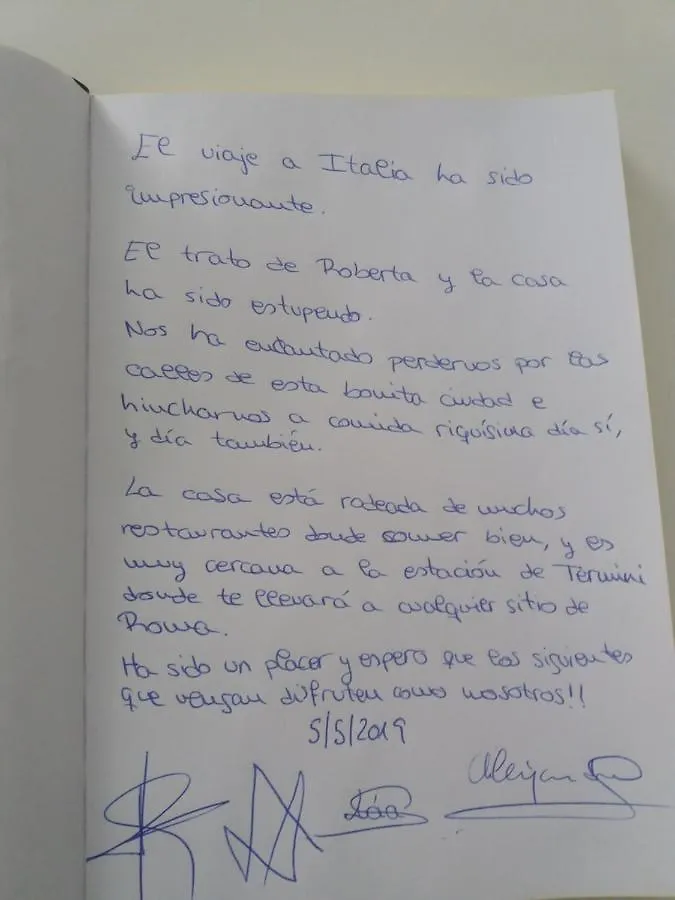 El viaje a Italia ha sido
impresionante.
El trato de Roberta y la casa
ha sido estupendo.
Nos ha encantado perdernos por las
calles de esta bonita ciudad e
hincharnos a comida riquísima día sí,
y día también.
La casa está rodeada de muchos
restaurantes donde comer bien, y es
muy cercana a la estación de Termini
donde te llevará a cualquier sitio de
Roma.
Ha sido un placer y espero que los siguientes
que vengan difruten como nosotros!!
5/5/2019